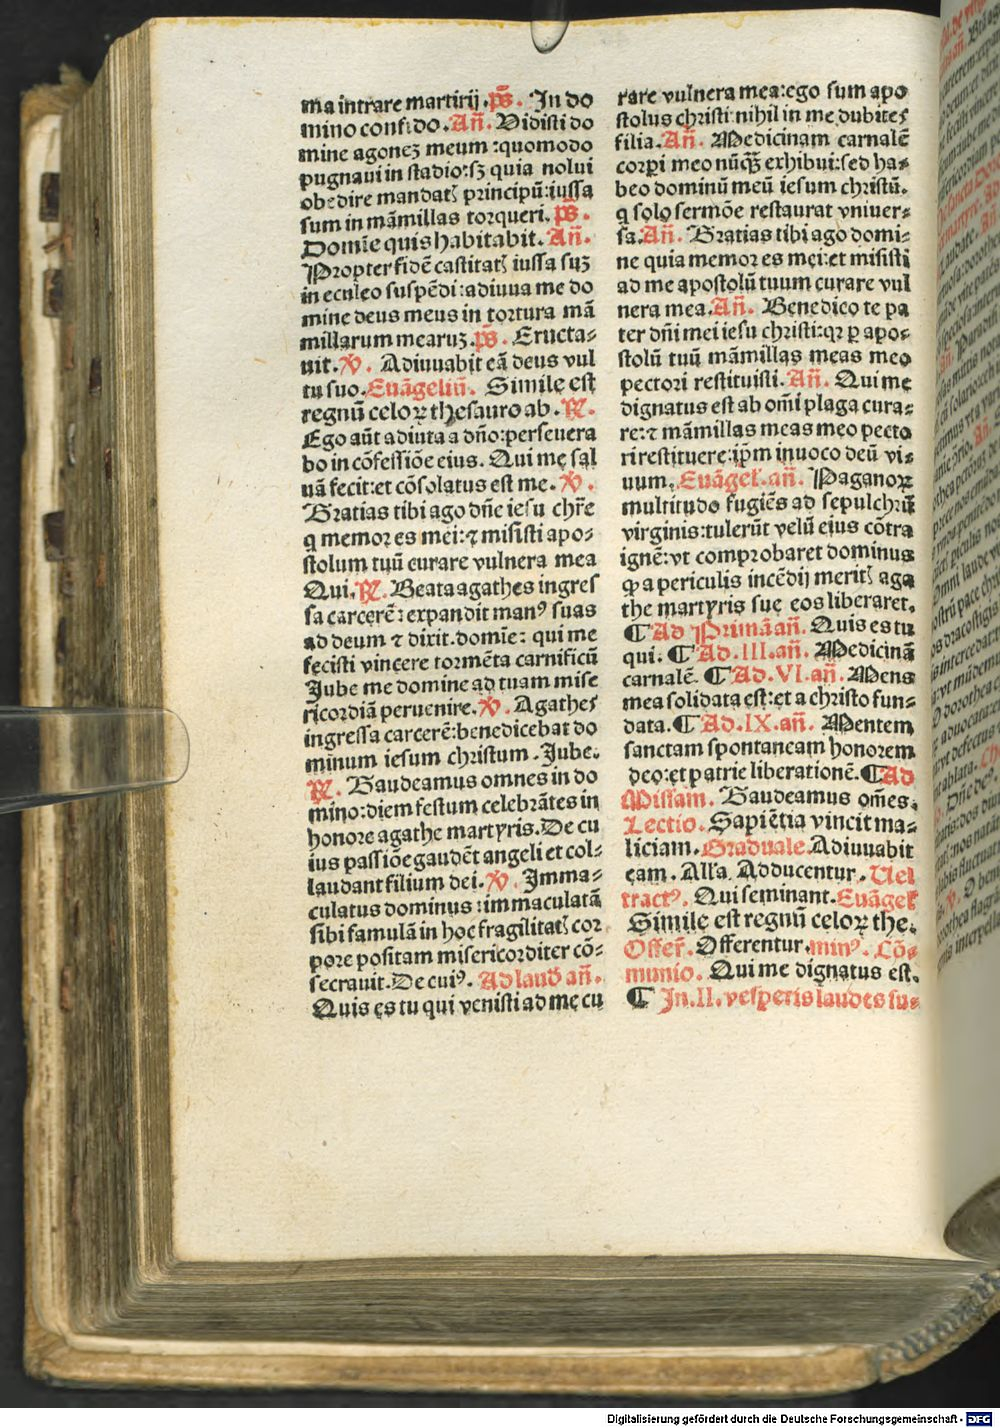 ma intrare martirij. p̄s. In do
mino confido. An̄. Vidisti do
mine agoneȝ meum: quomodo
pugnaui in stadio: sȝ quia nolui
obedire mandatꝭ principū: iussa
sum in māmillas torqueri. p̄s.
Domīe quis habitabit. An̄.
Propter fidē castitatꝭ iussa suȝ
in eculeo suspēdi: adiuua me do
mine deus meus in tortura mā
millarum mearuȝ. p̄s. Eructa-
uit. ꝟ. Adiuuabit eā deus vul
tu suo. Euāgeliū. Simile est
regnū celoꝝ thesauro ab. ꝶ.
Ego aūt adiuta a dn̄o: perseuera
bo in cōfessiōe eius. Qui me sal
uā fecit: et cōsolatus est me. ꝟ.
Gratias tibi ago dn̄e iesu chr̄e
q memor es mei: ⁊ misisti apo-
stolum tuū curare vulnera mea
Qui. ꝶ. Beata agathes ingres
sa carcerē: expandit manꝰ suas
ad deum ⁊ dixit. domīe: qui me
fecisti vincere tormēta carnificū
Jube me domine ad tuam mise
ricordiā peruenire. ꝟ. Agathes
ingressa carcerē: benedicebat do
minum iesum christum. Jube.
ꝶ. Gaudeamus omnes in do
mino: diem festum celebrātes in
honore agathe martyris. De cu
ius passiōe gaudēt angeli et col-
laudant filium dei. ꝟ. Imma-
culatus dominus: immaculatā
sibi famulā in hoc fragilitatꝭ cor
pore positam misericorditer cō-
secrauit. De cuiꝰ. Ad laud̄ an̄.
Quis es tu qui venisti ad me cu
rare vulnera mea: ego sum apo
stolus christi: nihil in me dubites
filia. An̄. Medicinam carnalē
corpi meo nūqȝ̄ exhibui: sed ha-
beo dominū meū iesum christū.
q solo sermōe restaurat vniuer-
sa. An̄. Gratias tibi ago domi-
ne quia memor es mei: et misisti
ad me apostolū tuum curare vul
nera mea. An̄. Benedico te pa
ter dn̄i mei iesu christi: qꝛ ꝑ apo-
stolū tuū māmillas meas meo
pectori restituisti. An̄. Qui me
dignatus est ab om̄i plaga cura-
re: ⁊ māmillas meas meo pecto
ri restituere: ip̄m inuoco deū vi-
uum. Euāgel̄. an̄. Paganoꝝ
multitudo fugiēs ad sepulchrū
virginis: tulerūt velū eius cōtra
ignē: vt comprobaret dominus
ꝙ a periculis incēdij meritꝭ aga
the martyris sue eos liberaret.
¶ Ad Primā an̄. Quis es tu
qui. ¶ Ad. III. an̄. Medicinā
carnalē. ¶ Ad. VI. an̄. Mens
mea solidata est: et a christo fun-
data. ¶ Ad. IX. an̄. Mentem
sanctam spontaneam honorem
deo: et patrie liberationē. ¶ Ad
Missam. Gaudeamus om̄es.
Lectio. Sapiētia vincit ma-
liciam. Graduale. Adiuuabit
eam. Alla. Adducentur. Uel
tractꝰ. Qui seminant. Euāgel̄
Simile est regnū celoꝝ the.
Offer̄. Offerentur. minꝰ. Cō-
munio. Qui me dignatus est.
¶ In. II. vesperis laudes su-
Digitalisierung gefördert durch die Deutsche Forschungsgemeinschaft - DFG